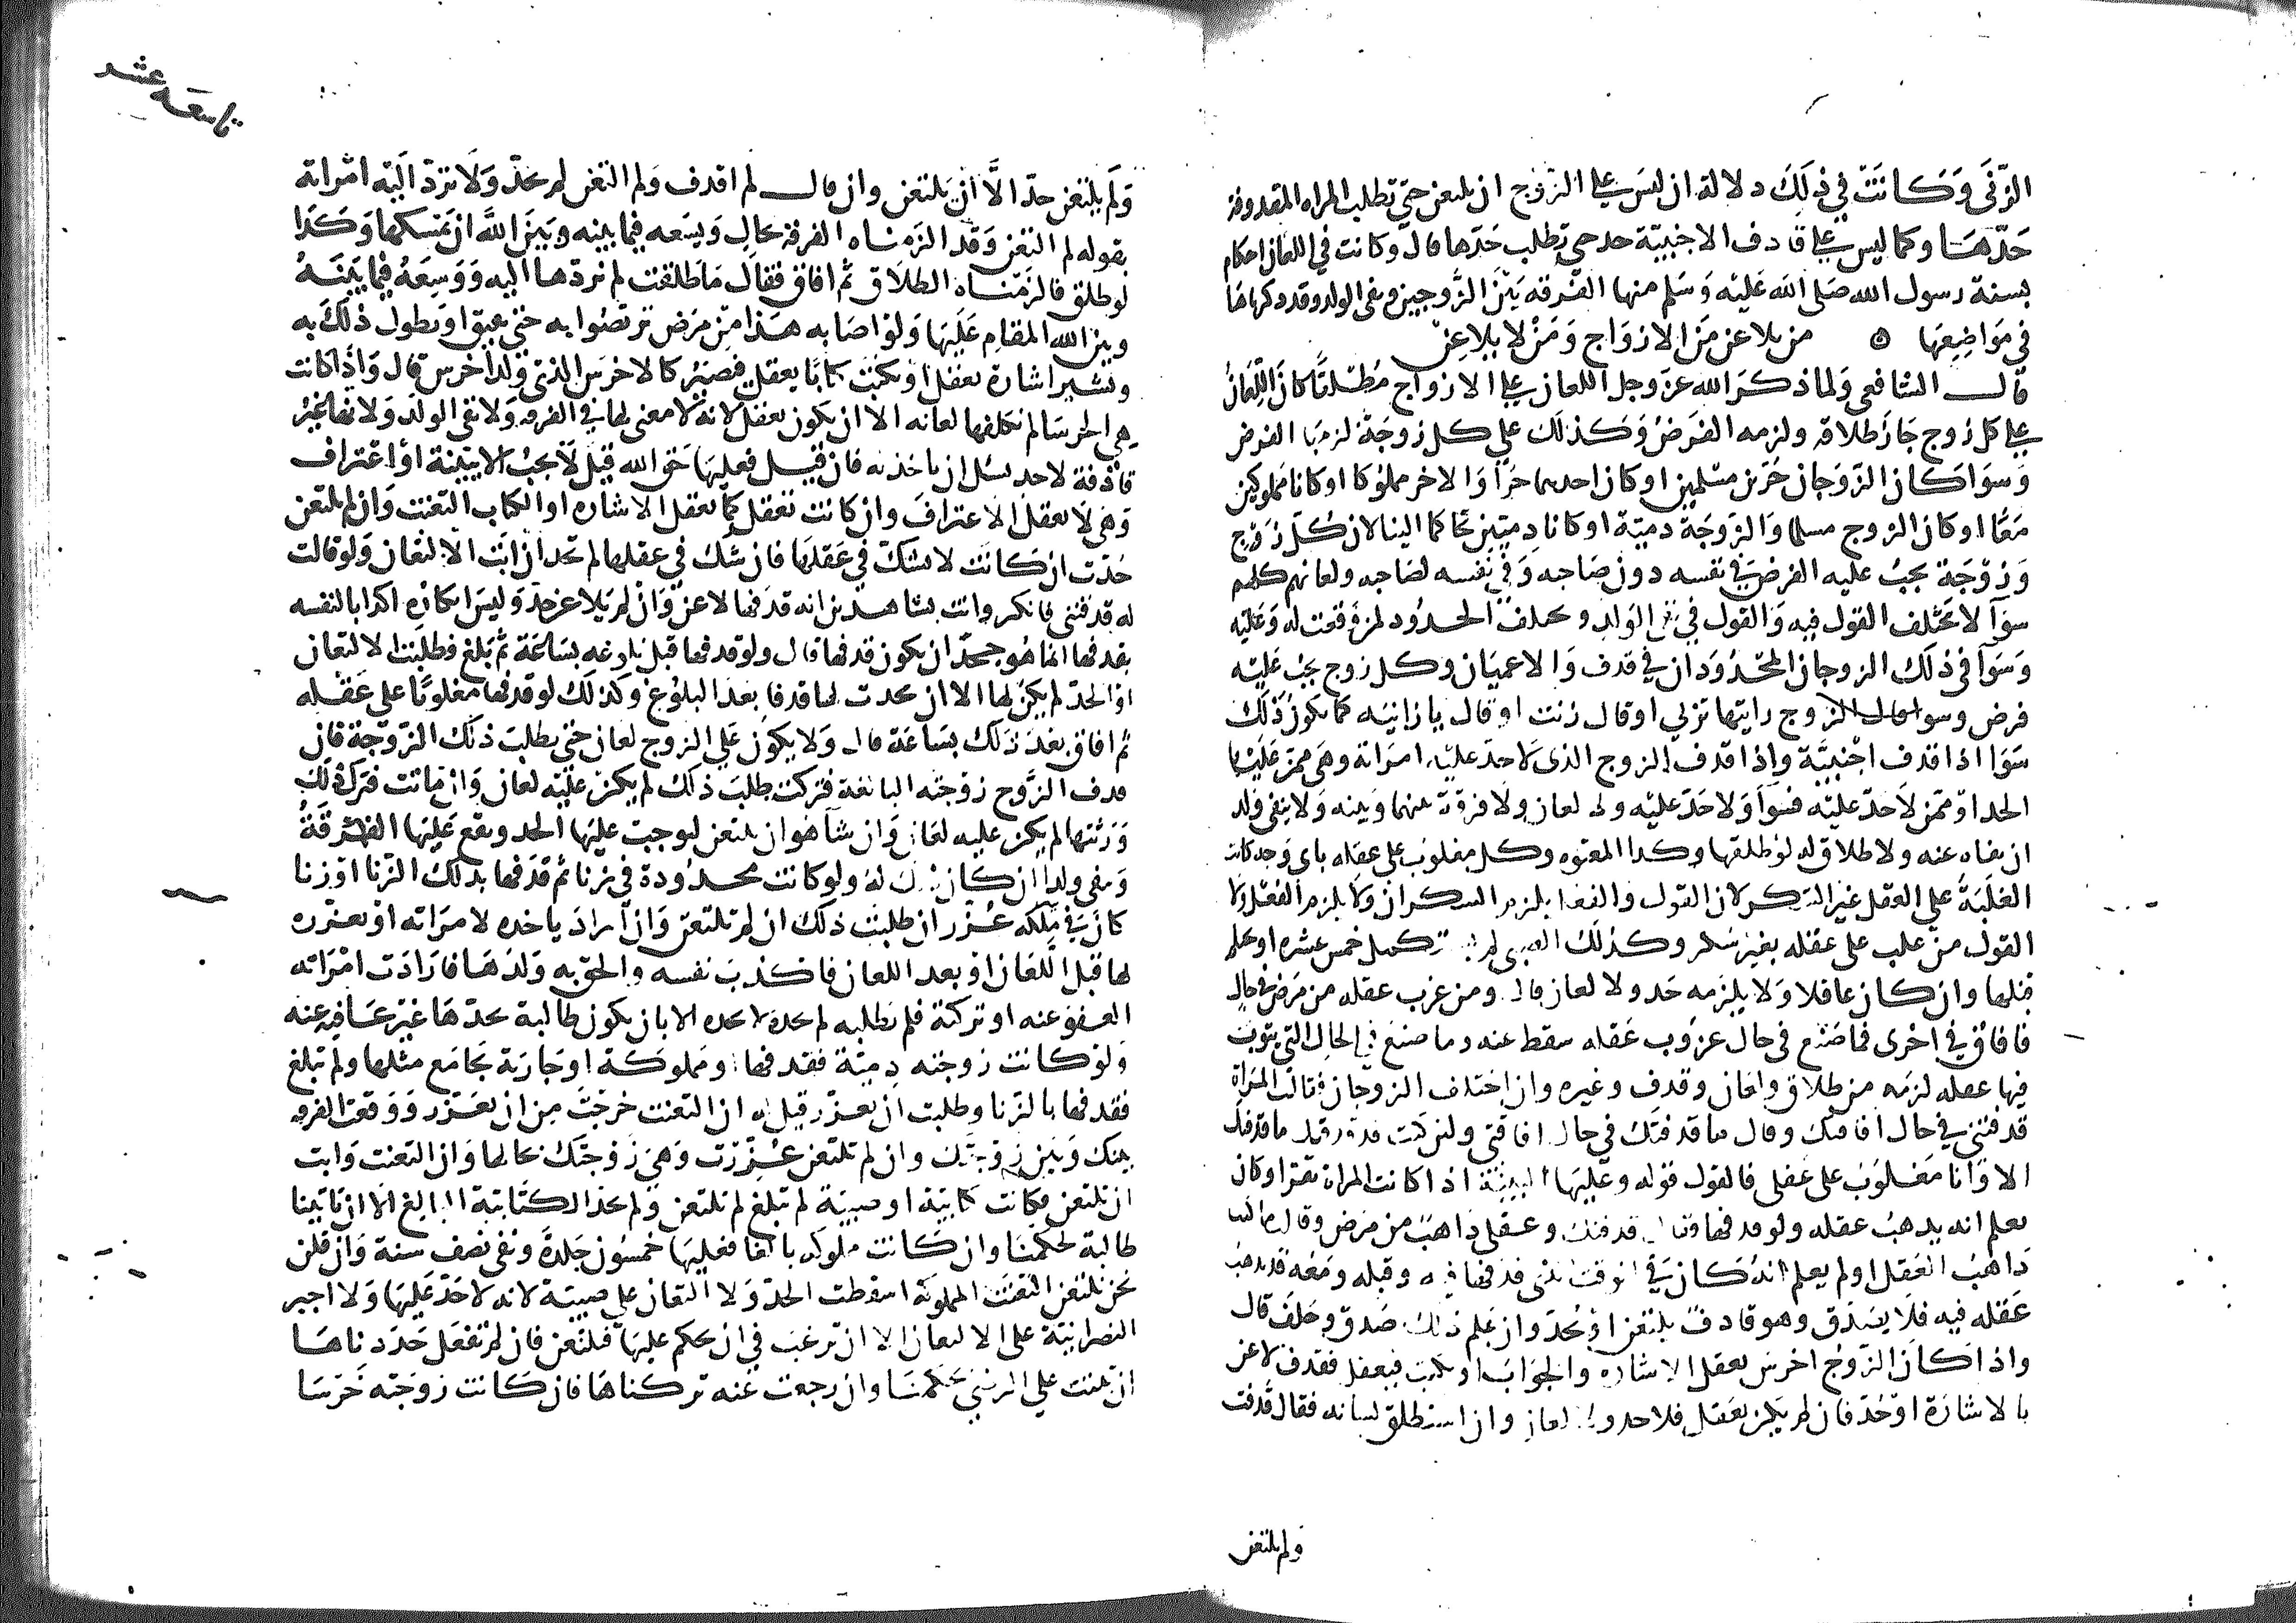 الزنى وكانت في ذلك دلالة ان ليس على الزوج ان يلتعن حتى تطلب المراه المقذوفة
حدها وكما ليس على قاذف الاجنبية حد حتى تطلب حدها قال وكانت في اللعان احكام
بسنة رسول الله صلى الله عليه وسلم منها الفرقه بين الزوجين ونفى الولد وقد ذكرناها
في مواضعها ۞ من يلاعن من الازواج ومن لا يلاعن
قال الشافعي ولما ذكر الله عز وجل اللعان على الازواج مطلقا كان اللعان
على كل زوج جاز طلاقه ولزمه الفرض وكذلك على كل زوجة لزمها الفرض
وسوا كان الزوجان حرين مسلمين او كان احدهما حرا والاخر مملوكا او كانا مملوكين
معا او كان الزوج مسلما والزوجة ذمية او كانا ذميين تحاكما الينا لان كل زوج
وزوجة يجب عليه الفرض في نفسه دون صاحبه وفي نفسه لصاحبه ولعانهم كلهم
سوآ لا يختلف القول فيه والقول في نفى الولد وتختلف الحدود لمن وقعت له وعليه
وسوآ في ذلك الزوجان المحدودان في قذف والاعميان وكل زوج يجب عليه
فرض وسوا قال الزوج رايتها تزني او قال زنت او قال يا زانيه كما يكون ذلك
سوا اذا قذف اجنبية واذا قذف الزوج الذي لا حد عليه امراته وهي ممن عليها
الحد او ممن لا حد عليه فسوآ ولا حد عليه ولا لعان ولا فرقة بينهما وبينه ولا ينفى ولد
ان نفاه عنه ولا طلاق له لو طلقها وكذا المعتوه وكل مغلوب على عقله باى وجه كانت
الغلبة على العقل غير السكر لان القول والفعل يلزم السكران ولا يلزم الفعل ولا
القول من غلب على عقله بغير سكر وكذلك الصبى لم تكمل خمس عشره او يحتلم
قبلها وان كان عاقلا ولا يلزمه حد ولا لعان قال ومن عزب عقله من مرض في حال
فافاق في اخرى فما صنع في حال عزوب عقله سقط عنه وما صنع في الحال التي يثوب
فيها عقله لزمه من طلاق ولعان وقذف وغيره وان اختلف الزوجان فقالت المراة
قذفتني في حال افاقتك وقال ما قذفتك في حال افاقتى ولئن كنت قذفتك ما قذفتك
الا وانا مغلوب على عقلى فالقول قوله وعليها البينة اذا كانت المراة تقر او كان
يعلم انه يذهب عقله ولو قذفها فقال قذفتك وعقلى ذاهب من مرض وقالت ما كنت
ذاهب العقل او لم يعلم انه كان في الوقت الذى قذفها فيه وقبله ومعه قد يذهب
عقله فيه فلا يصدق وهو قاذف يلتعن او يحد وان علم ذلك صدق وحلف قال
واذا كان الزوج اخرس يعقل الاشاره والجواب او يكتب فيعقل فقذف لاعن
بالاشارة او حد فان لم يكن يعقل فلا حد ولا لعان وان استطلق لسانه فقال قذفت
ولم يلتعن
تاسعه عشر
ولم يلتعن حد الا ان يلتعن وان قال لم اقذف ولم التعن لم يحد ولا ترد اليه امراته
بقوله لم التعن وقد الزمناه الفرقة بحال ويسعه فيما بينه وبين الله ان يمسكها وكذا
لو طلق فالزمناه الطلاق ثم افاق فقال ما طلقت لم نردها اليه ووسعه فيما بينه
وبين الله المقام عليها ولو اصابه هذا من مرض تربصوا به حتى يفيق او يطول ذلك به
ويشير اشارة تعقل او يكتب كتابا يعقل فيصير كالاخرس الذي ولد اخرس قال واذا كانت
هي الخرسا لم نكلفها لعانه الا ان تكون تعقل لانه لا معنى لها في الفرقه ولا نفى الولد ولا نها غير
قاذفة لاحد يسل ان ياخذ به فان قيل فعليها حق الله قيل لا يجب الا ببينة او اعتراف
وهي لا تعقل الاعتراف وان كانت تعقل كما تعقل الاشاره او الكتاب التعنت وان لم تلتعن
حدت ان كانت لا يشك في عقلها فان شك في عقلها لم تحد ان ابت الالتعان ولو قالت
له قد قذفتني فانكر واتت بشاهدين انه قذفها لاعن وان لم يلاعن حد وليس انكاره اكذابا لنفسه
بقذفها انما هو جحد ان يكون قذفها قال ولو قذفها قبل بلوغه بساعة ثم بلغ فطلبت الالتعان
او الحد لم يكن لها الا ان يحدث لها قذفا بعد البلوغ وكذلك لو قذفها مغلوبا على عقله
ثم افاق بعد ذلك بساعة قال ولا يكون على الزوج لعان حتى تطلب ذلك الزوجة فان
قذف الزوج زوجته البالغة فتركت طلب ذلك لم يكن عليه لعان وان ماتت فترك ذلك
ورثتها لم يكن عليه لعان وان شآ هو ان يلتعن ليوجب عليها الحد وتقع عليها الفرقة
وينفى ولدا ان كان كان ذلك له ولو كانت محدودة في زنا ثم قذفها بذلك الزنا او زنا
كان في ملكه عزر ان طلبت ذلك ان لم يلتعن وان اراد ياخذه لامراته او تعزره
لها قبل اللعان او بعد اللعان فاكذب نفسه والحق به ولدها فارادت امراته
العفو عنه او تركته فلم تطلبه لم نحده لا نحده الا بان يكون طالبة بحدها غير عافيه عنه
ولو كانت زوجته ذمية فقذفها او مملوكة او جارية يجامع مثلها ولم تبلغ
فقذفها بالزنا وطلبت ان يعزر قيل له ان التعنت خرجت من ان تعزر ووقعت الفرقه
بينك وبين زوجتك وان لم تلتعن عزرت وهي زوجتك بحالها وان التعنت وابت
ان تلتعن فكانت كتابية او صبية لم تبلغ لم تلتعن ولم تحد الكتابية البالغ الا ان تاتينا
طالبة لحكمنا وان كانت مملوكه بالغا فعليها خمسون جلدة ونفى نصف سنة وان قلن
نحن نلتعن التعنت المملوكة اسقطت الحد ولا التعان على صبية لانه لا حد عليها ولا اجبر
النصرانية على الالتعان الا ان ترغب في ان يحكم عليها فتلتعن فان لم تفعل حددناها
ان ثبتت على الرضى بحكمنا وان رجعت عنه تركناها فان كانت زوجته خرسا